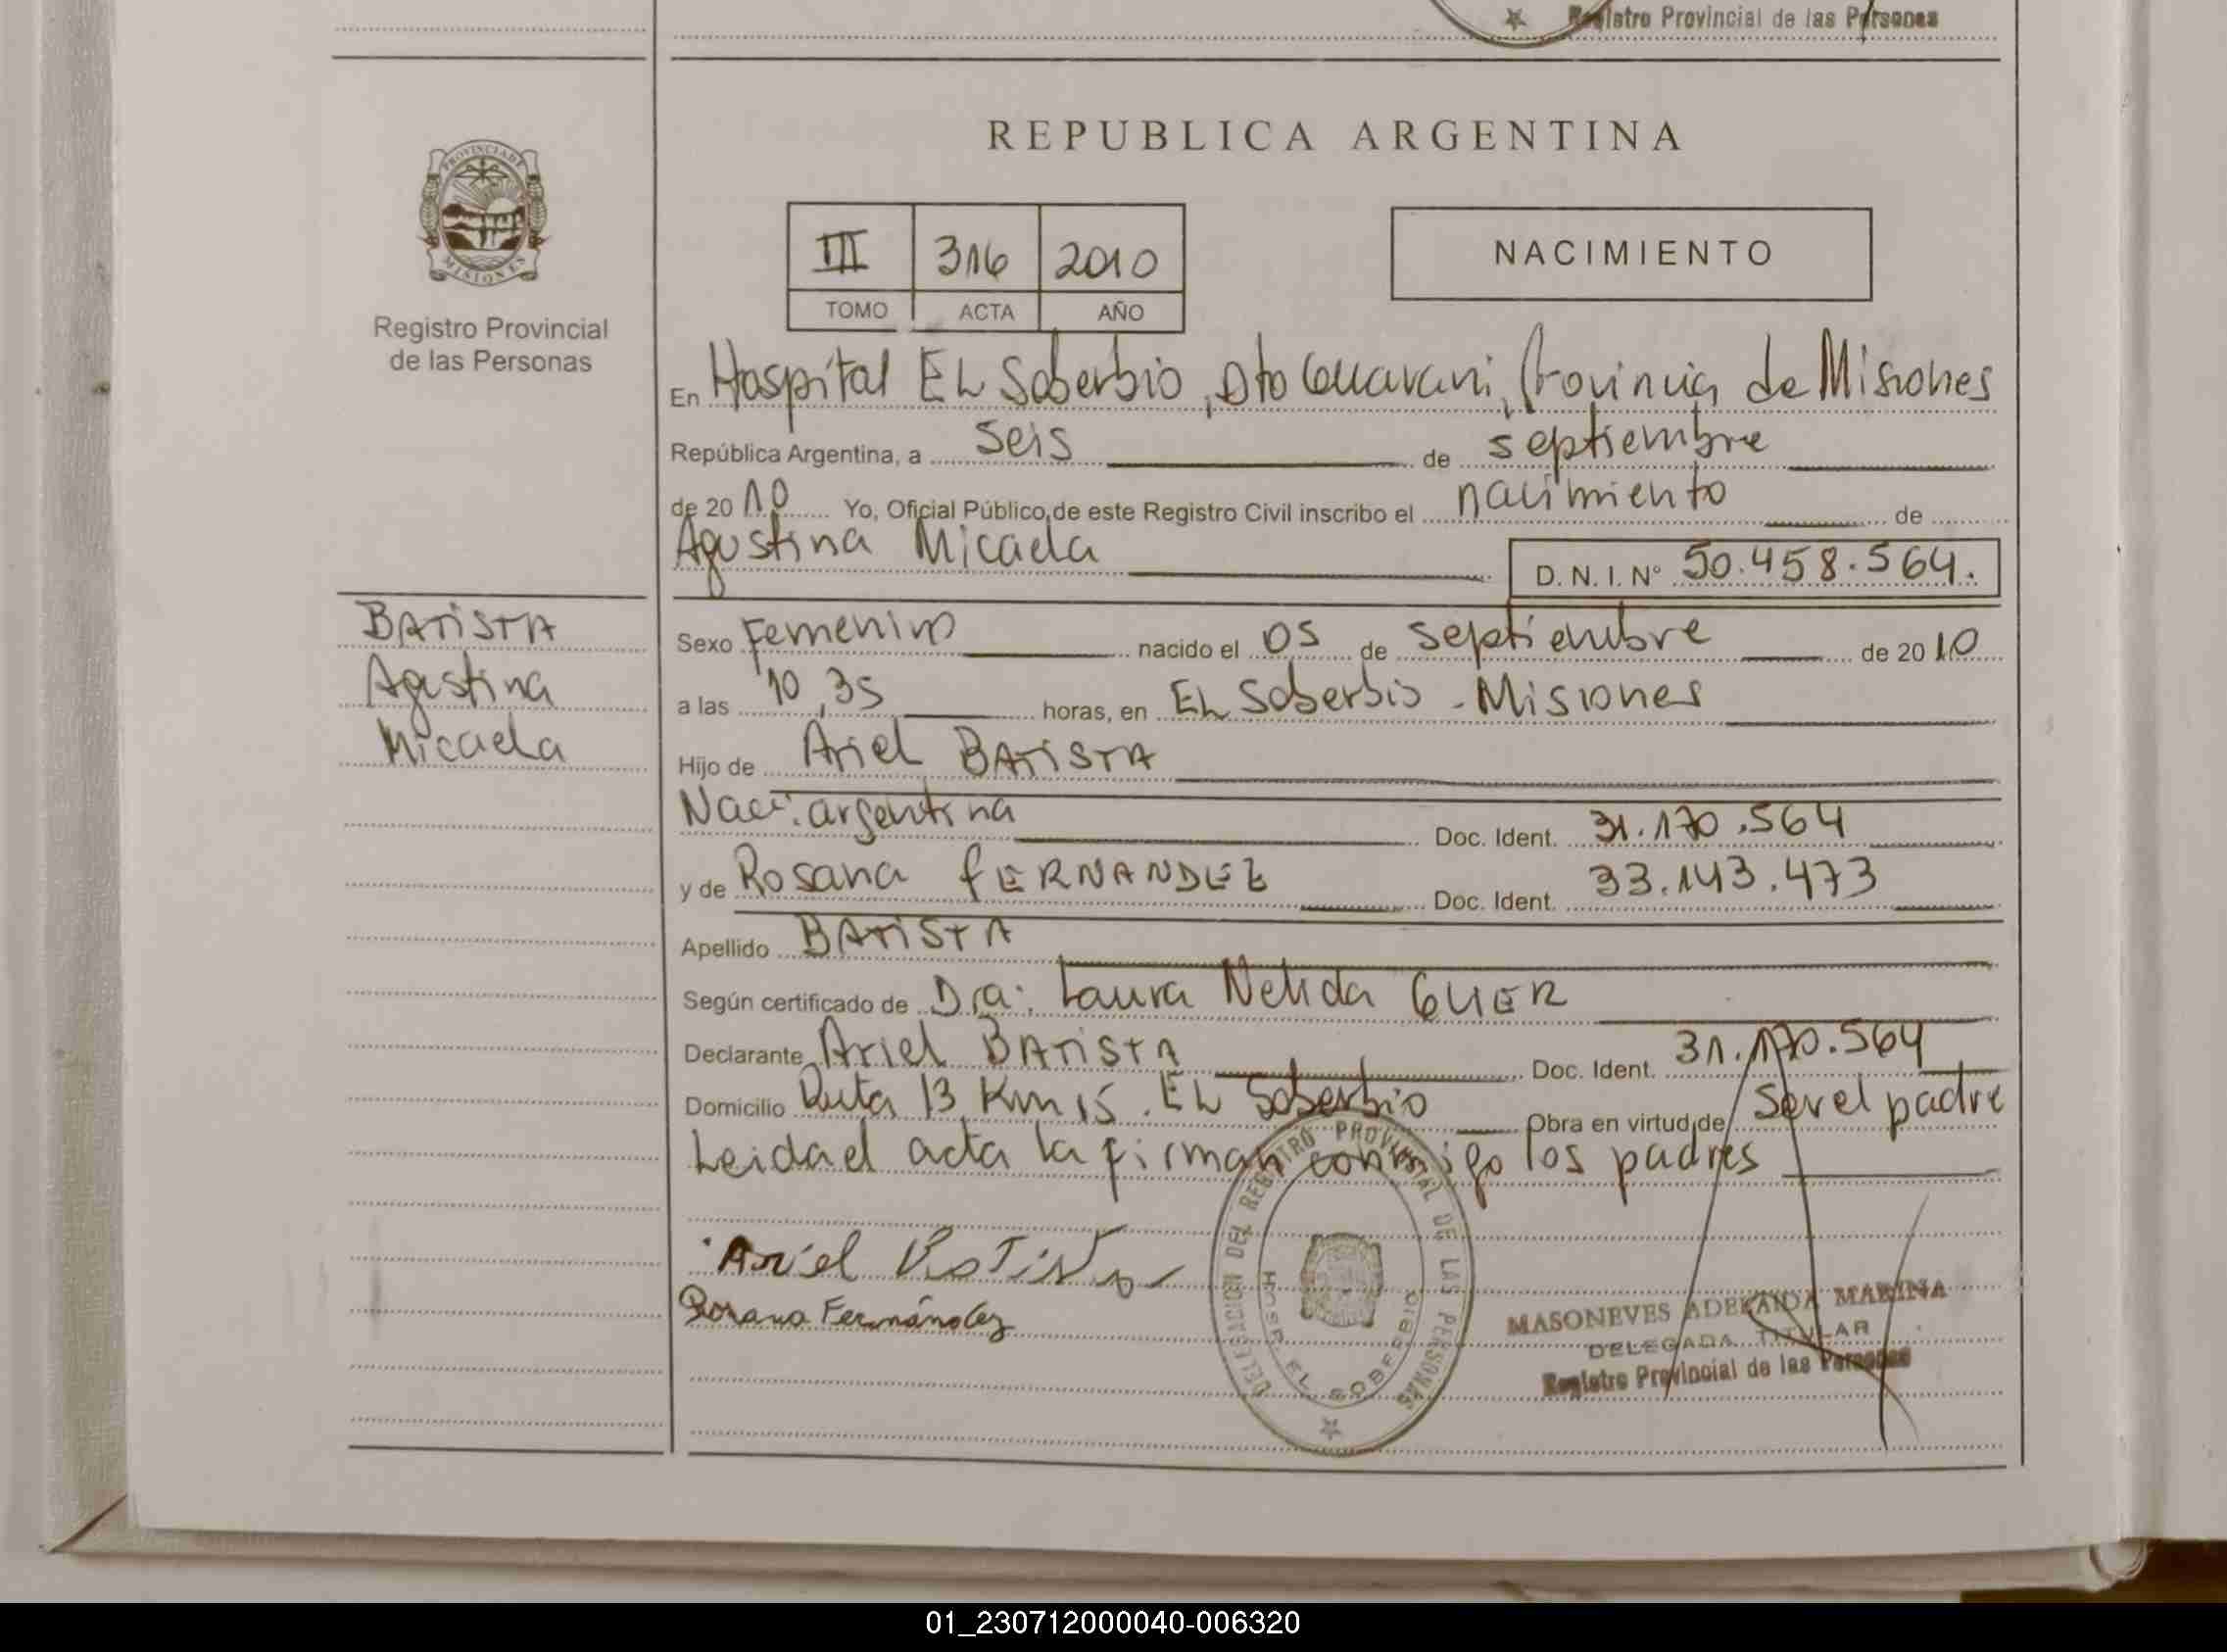 Registro Provincial de las Personas
PROVINCIA DE
MISIONES
Registro Provincial
de las Personas
REPUBLICA ARGENTINA
III 316 2010
TOMO ACTA AÑO
NACIMIENTO
En Hospital EL Soberbio, Dto Guarani, Provincia de Misiones
República Argentina, a seis de septiembre
de 2010 Yo, Oficial Público de este Registro Civil inscribo el nacimiento de
Agustina Micaela D. N. I. N° 50.458.564.
BATISTA
Agustina
Micaela
Sexo Femenino nacido el 05 de septiembre de 2010
a las 10,35 horas, en EL Soberbio - Misiones
Hijo de Ariel BATISTA
Nac: argentina Doc. Ident. 31.170.564
y de Rosana FERNANDEZ Doc. Ident. 33.143.473
Apellido BATISTA
Según certificado de Dra: Laura Nelida GUER
Declarante Ariel BATISTA Doc. Ident. 31.170.564
Domicilio Ruta 13 Km 15. EL Soberbio Obra en virtud de Ser el padre
Leida el acta la firman conmigo los padres
Ariel Batista
Rosana Fernández
DELEGACION DEL REGISTRO PROVINCIAL DE LAS PERSONAS
HOSP. EL SOBERBIO
MASONEVES ADELAIDA MARINA
DELEGADA TITULAR
Registro Provincial de las Personas
01_230712000040-006320